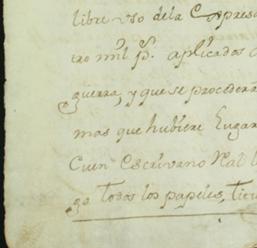 libre uso dela Expresa
tro mil p.s aplicados
guerra, y que se procedera
mas que hubiere lugar
Cuen Escrivano Ral
go todos los papeles, tien